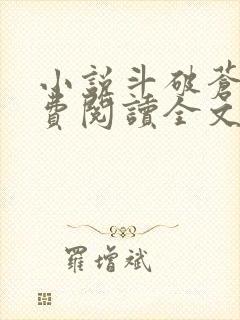 小說斗破蒼
費閱讀全文
羅增斌